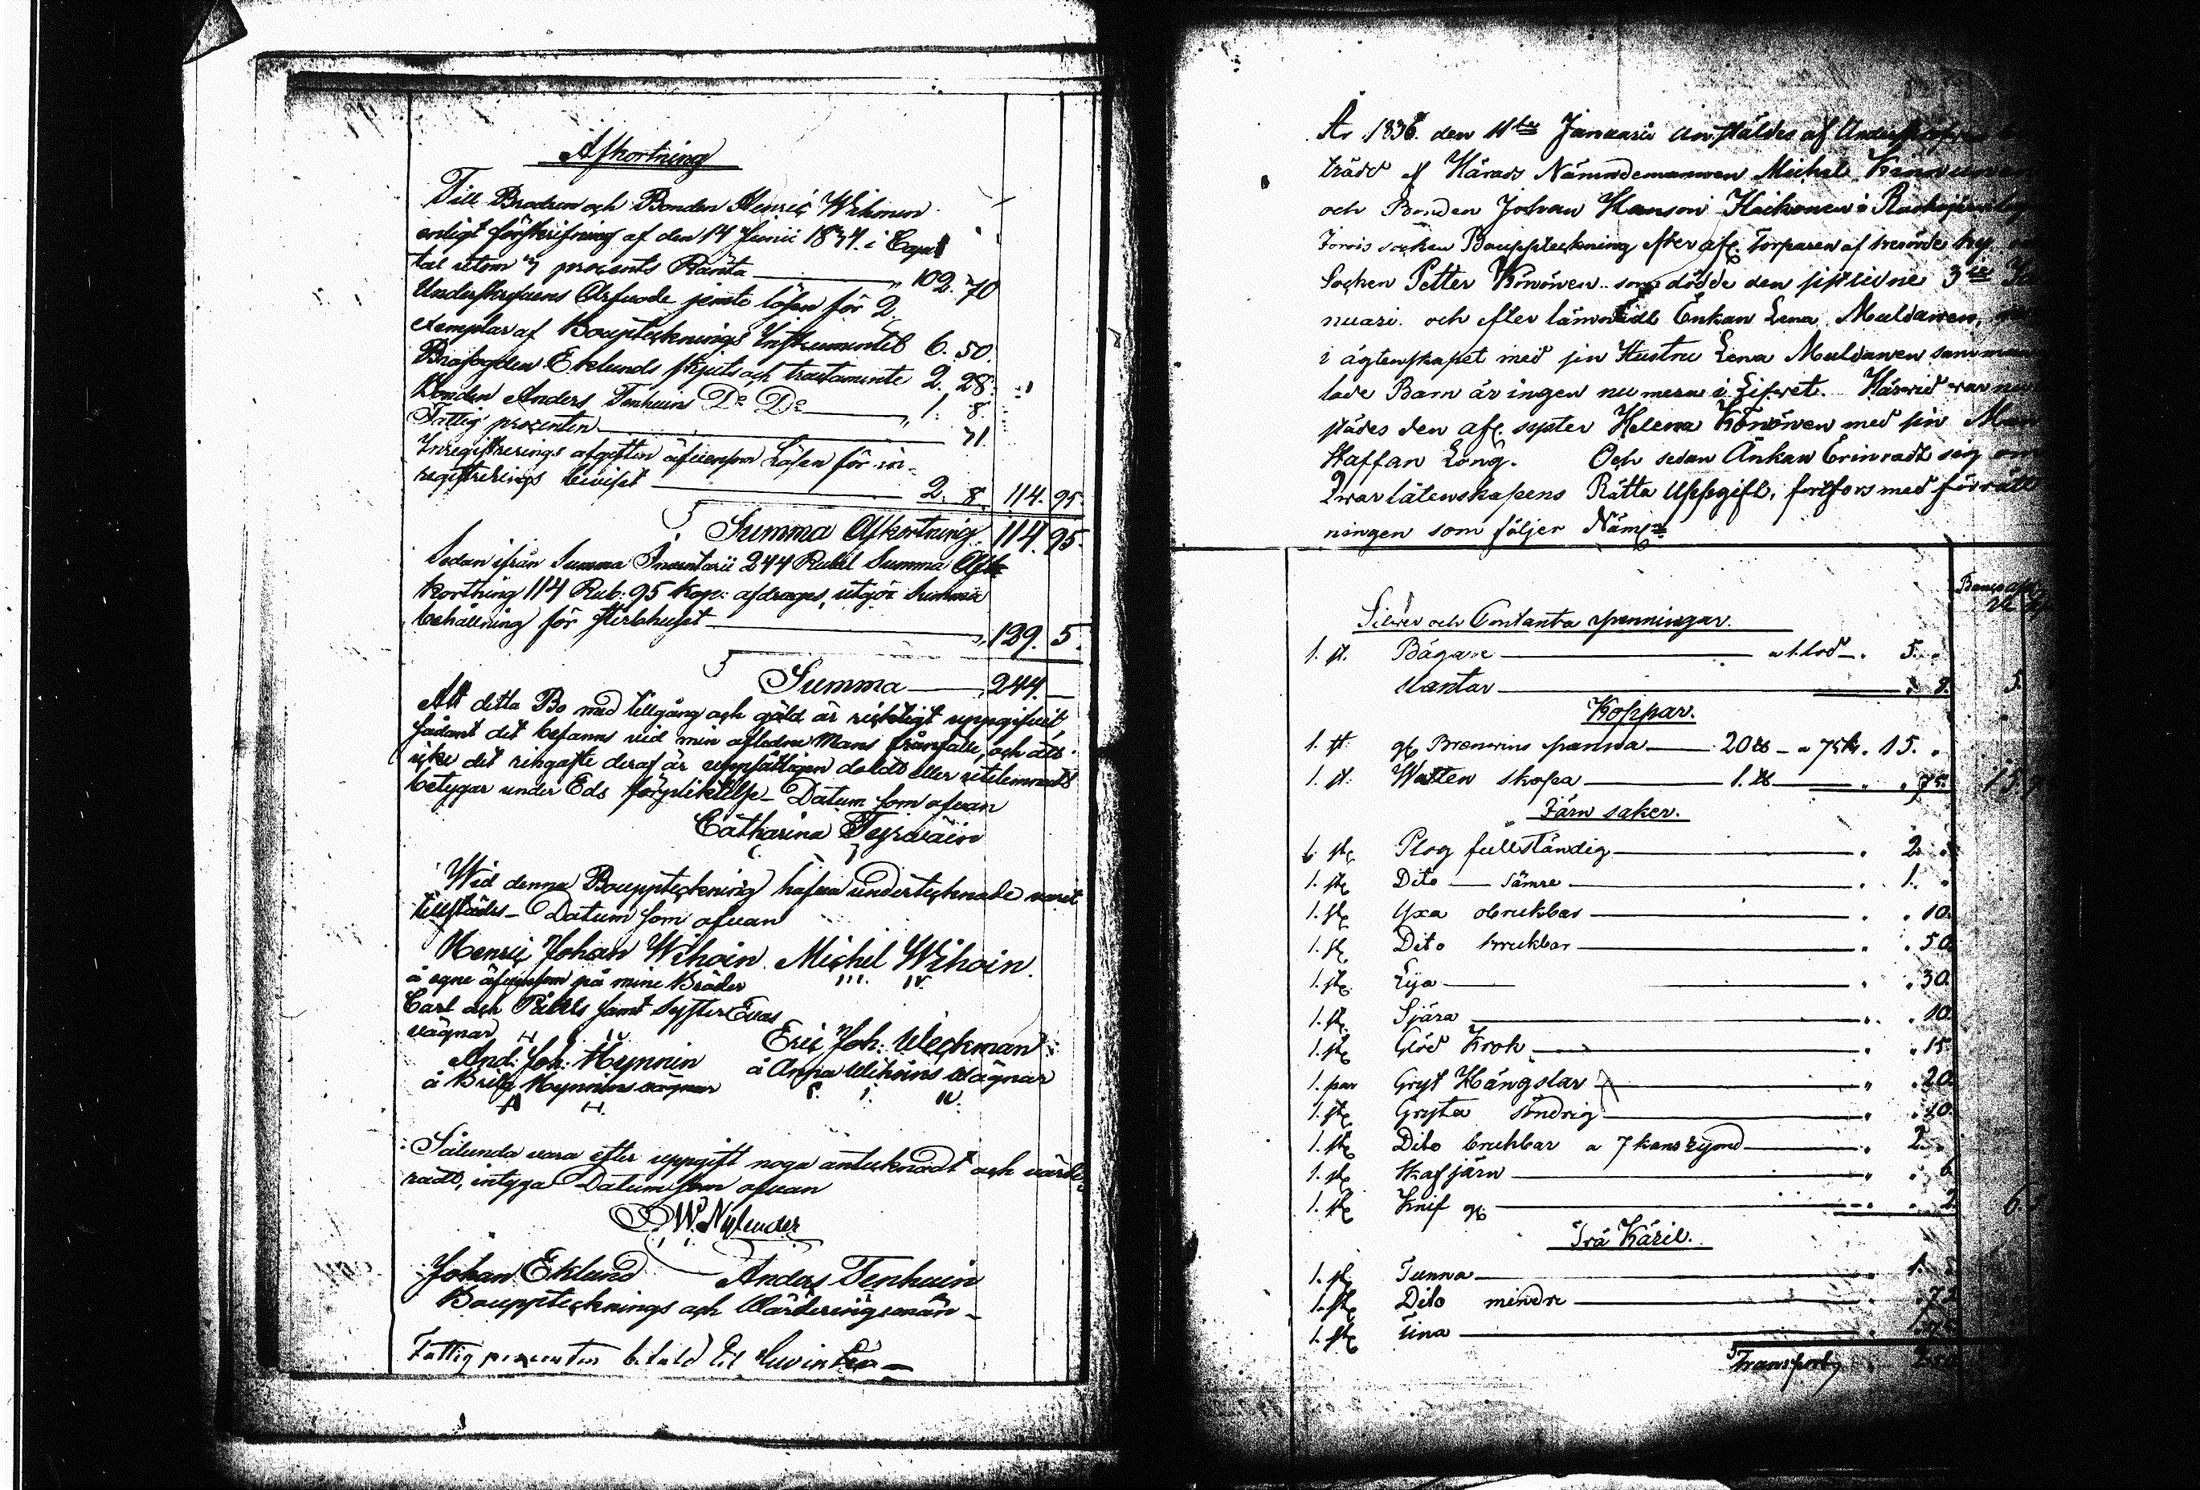 Afkortning
Till Brodren och Bonden Henric Wihonen
enligt förskrifning af den 14 Junii 1834. i Capi
tal utom 7 procents Ränta — " 102. 70
Underskrefvens Arfvode jemte lösen för 2
exemplar af Bouptecknings Instrumentet 6. 50.
Brofogden Eklunds skjuts och tractamente 2. 28.
Bonden Anders Tenhuins Do Do — " 1. 8.
Fattig procenten — 71
Inregistrerings afgiften äfvensom Lösen för in-
registrerings beviset — 2. 8. 114. 95
Summa Afkortning 114. 95.
Sedan ifrån Summa Inventarii 244 Rubel Summa Af
kortning 114 Rub: 95 kop: afdrages, utgör Summa
behållning för sterbhuset — " 129. 5.
Summa — 244. —
Att detta Bo med tillgång och gäld är riktigt uppgifvit,
sådant det befanns vid min afledne Mans frånfälle, och att
icke det ringaste deraf är uppsåtligen doldt eller utelemnadt
betygar under Eds förpliktelse — Datum som ofvan
Catharina Teyrväin
Wid denna Bouppteckning hafva undertecknade varit
tillstädes — Datum som ofvan
Henric Johan Wihoin. Michel Wihoin.
å egne äfvensom på mine Bröder
Carl och Påhls samt syster Evas
vägnar
And: Joh: Hynnin Eric Joh: Weckman
å Brita Hynnins vägnar å Anna Wihoins Wägnar
Sålunda vara efter uppgift noga antecknadt och värde-
radt, intyga Datum som ofvan
W. Nylender
Johan Eklund Anders Tenhuin
Bouppteknings och Wärderingsmän —
Fattig procenten betald til
År 1836. den 11te Januarii anstäldes af
träde af Härads Nämndemannen Michel Kinnunen
och Bonden Johan Hansson Haikonen i
Jorois socken Bouppteckning efter afl. Torparen af
Socken Petter Könönen som dödde den sistlidne 3die Ja
nuari. och efter lämnadt Enkan Lena Muldanen,
i ägtenskapet med sin Hustru Lena Muldanen samman
lade Barn är ingen nu mera i Lifvet. Härvid var
städes den afl. syster Helena Könönen med sin Man
Staffan Long. Och sedan Änkan Erinradt sig om
Qwarlåtenskapens Rätta Uppgift, fortfors med förrätt
ningen som följer Näml:
Silver och Contanta penningar.
1. st. Bägare — a 1. lod — . 5. "
Kontar — 5.
Koppar.
1. st. gl. Bränvins panna — 20 ℔ — a 75 k. 15. "
1. st. Watten skopa — 1. ℔ — " 75. 15. 7
Järn saker.
1. st. Plog fullständig — " 2. "
1. st. Dito — sämre — " 1. "
1. st. Yxa obrukbar — " " 10.
1. st. Dito brukbar — " " 50.
1. st. Lija — " 30.
1. st. Sjära — " 10.
1. st. Glöd Krok — " 15.
1. par Gryt Hängslar — " 20.
1. st. Gryta söndrig — " 10.
1. st. Dito brukbar a 7 kans rymd — " 2. "
1. st. Skafjärn — " " 6.
1. st. Knif gl. — " 2. 6.
Trä Käril.
1. st. Tunna — " 1.
1. st. Dito mindre —
1. st. Tina — 75
Transport